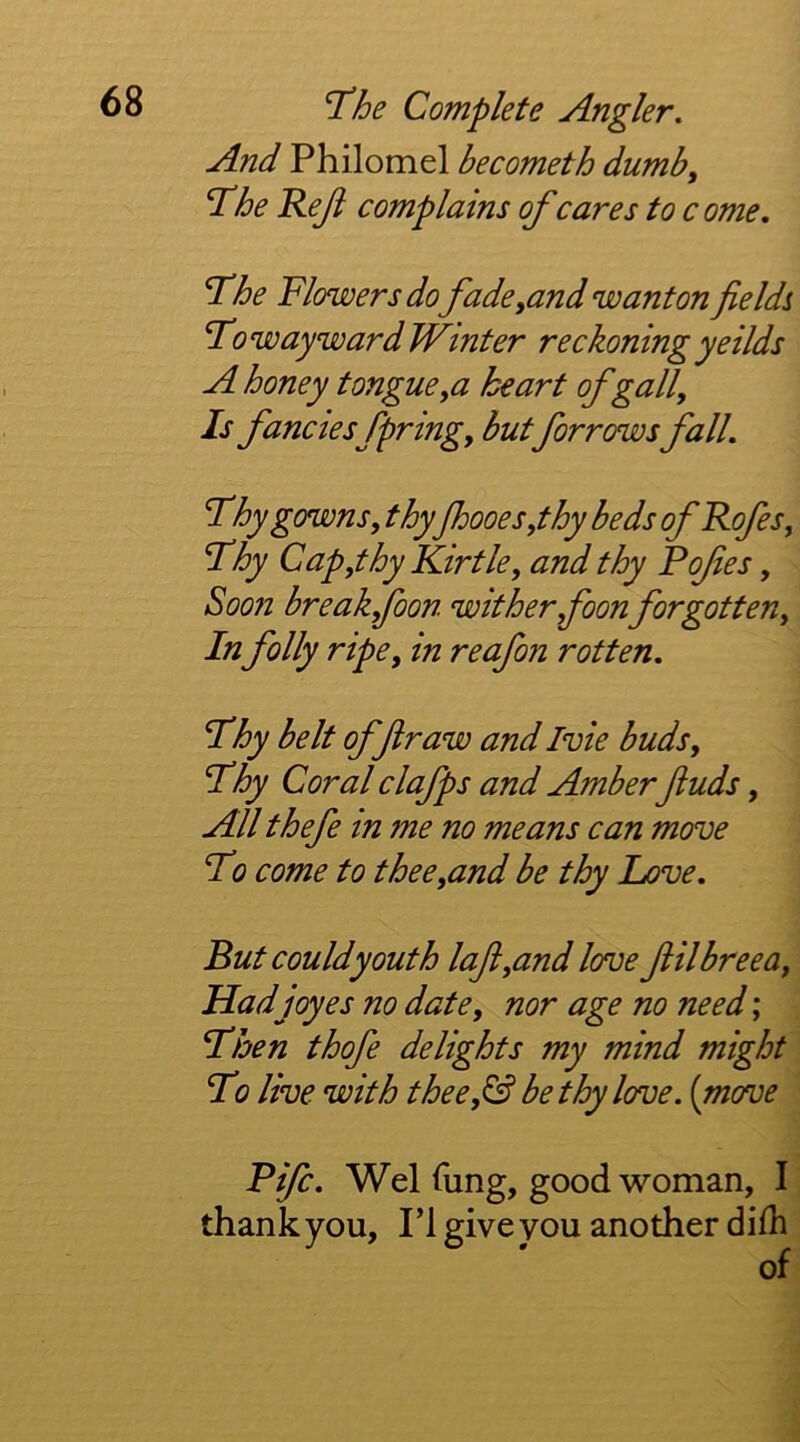 68 The Complete Angler.
And Philomel becometh dumb,
The Reſt complains of cares to c ome.
The Flowers do fade,and wanton fields
To wayward Winter reckoning yeilds
A honey tongue,a heart of gall,
Is fancies ſpring, but ſorrows fall.
Thy gowns, thy ſhooes,thy beds of Roſes,
Thy Cap,thy Kirtle, and thy Poſies ,
Soon break,ſoon wither,ſoon forgotten,
In folly ripe, in reaſon rotten.
Thy belt of ſtraw and Ivie buds,
Thy Coral claſps and Amber ſtuds ,
All theſe in me no means can move
To come to thee,and be thy Love.
But could youth laſt,and love ſtil breea,
Had joyes no date, nor age no need;
Then thoſe delights my mind might
To live with thee,& be thy love. (move
Piſc. Wel ſung, good woman, I
thank you, I'l give you another diſh
of